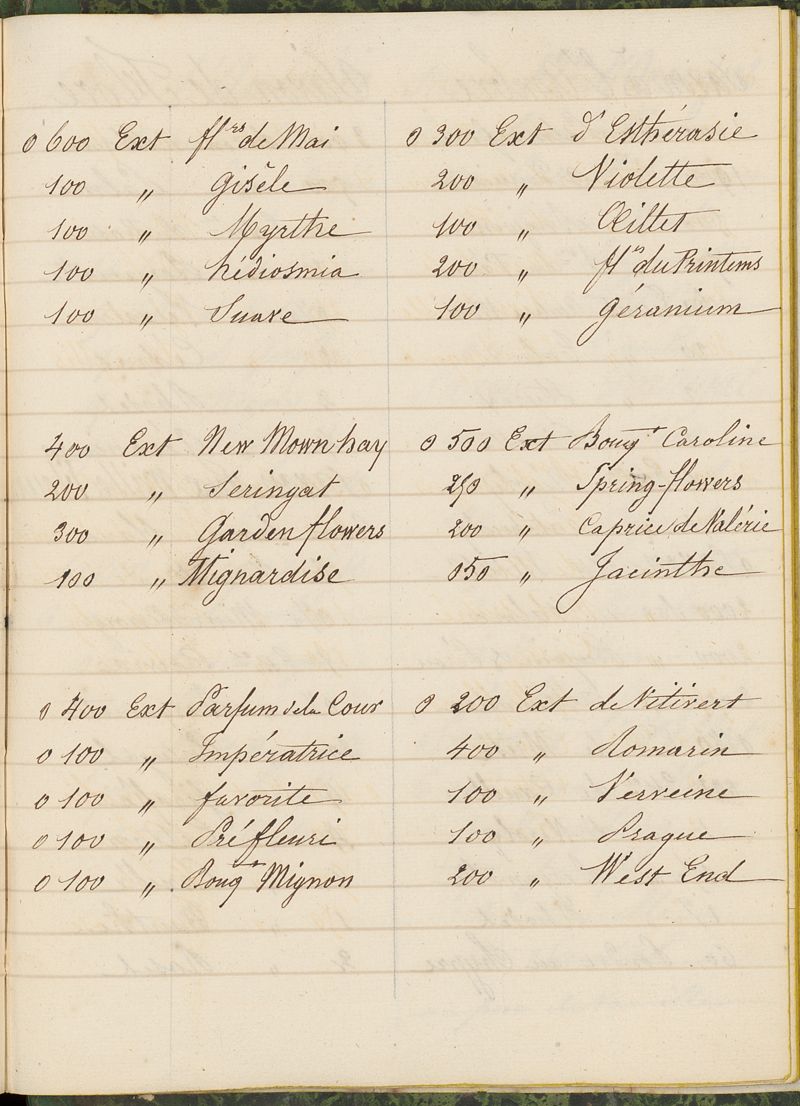 0 600 Ext flrs de Mai
100 " Gisèle
100 " Myrthe
100 " hédiosmia
100 " Suave
0 300 Ext d'Esthérasie
200 " Violette
100 " Œillet
200 " flrs du Printems
100 " Géranium
400 Ext New Mown hay
200 " Seringat
300 " Garden flowers
100 " Mignardise
0 500 Ext Bouqt Caroline
250 " Spring-flowers
200 " Caprice de Valérie
050 " Jacinthe
0 400 Ext Parfum de la Cour
0 100 " Impératrice
0 100 " favorite
0 100 " Pré fleuri
0 100 " Bouqt Mignon
0 200 Ext de Vitivert
400 " Romarin
100 " Verveine
100 " Prague
200 " West End